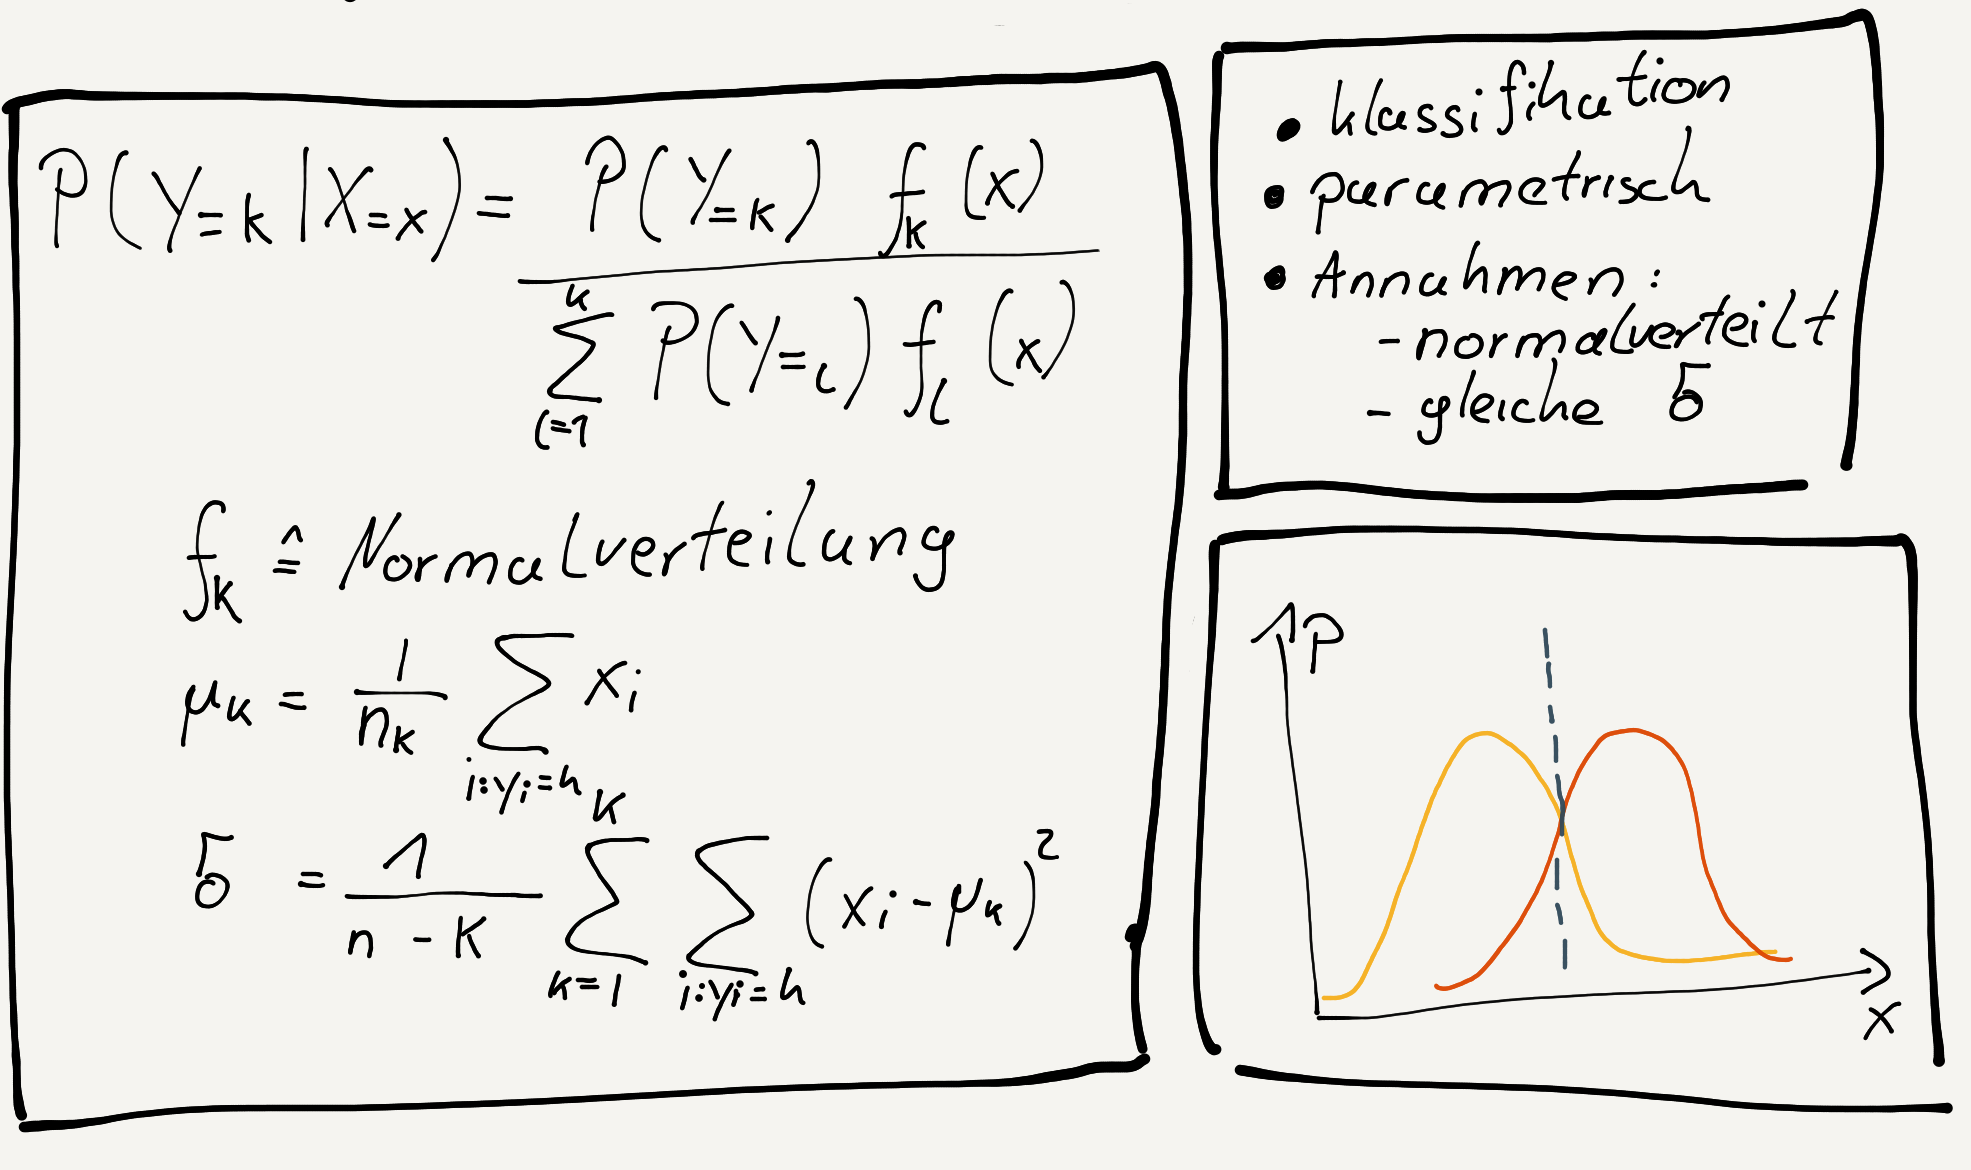 P(Y=k|X=x) = P(Y=k) f_k(x) / ∑_{l=1}^{k} P(Y=l) f_l(x)
f_k ≙ Normalverteilung
μ_k = 1/n_k ∑_{i:y_i=k} x_i
σ = 1/(n-K) ∑_{k=1}^{K} ∑_{i:y_i=k} (x_i-μ_k)^2
• klassifikation
• parametrisch
• Annahmen:
- normalverteilt
- gleiche σ
P
x